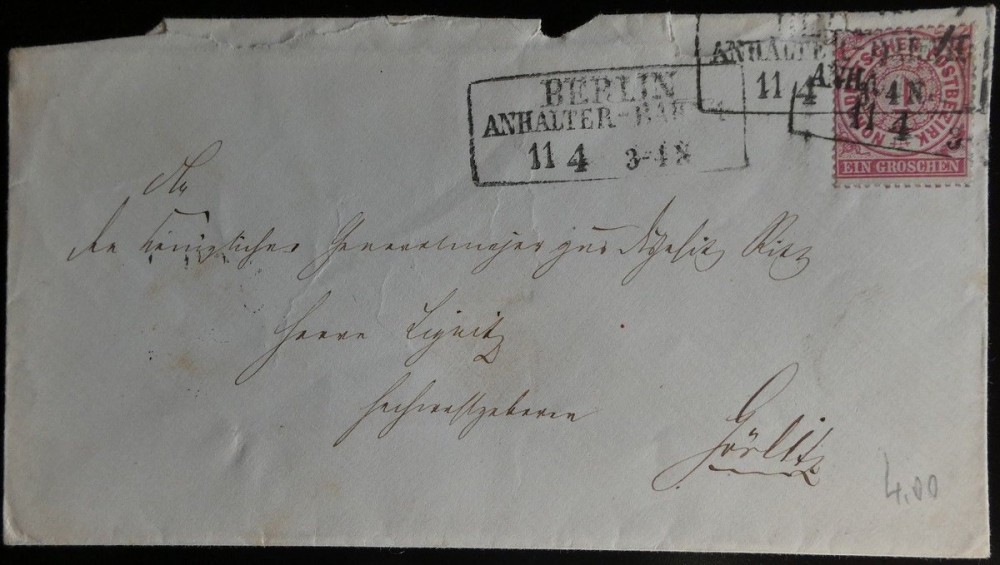 BERLIN
ANHALTER-BAHNH
11 4 3-4 N
ANHALTER
11 4 3-4 N.
ANHA
11 4
NORDDEUTSCHER POSTBEZIRK
EIN GROSCHEN
An
den Königlichen Generalmajor zur Ritt
Herrn Lignitz
Hochwohlgeboren
Görlitz
4.00